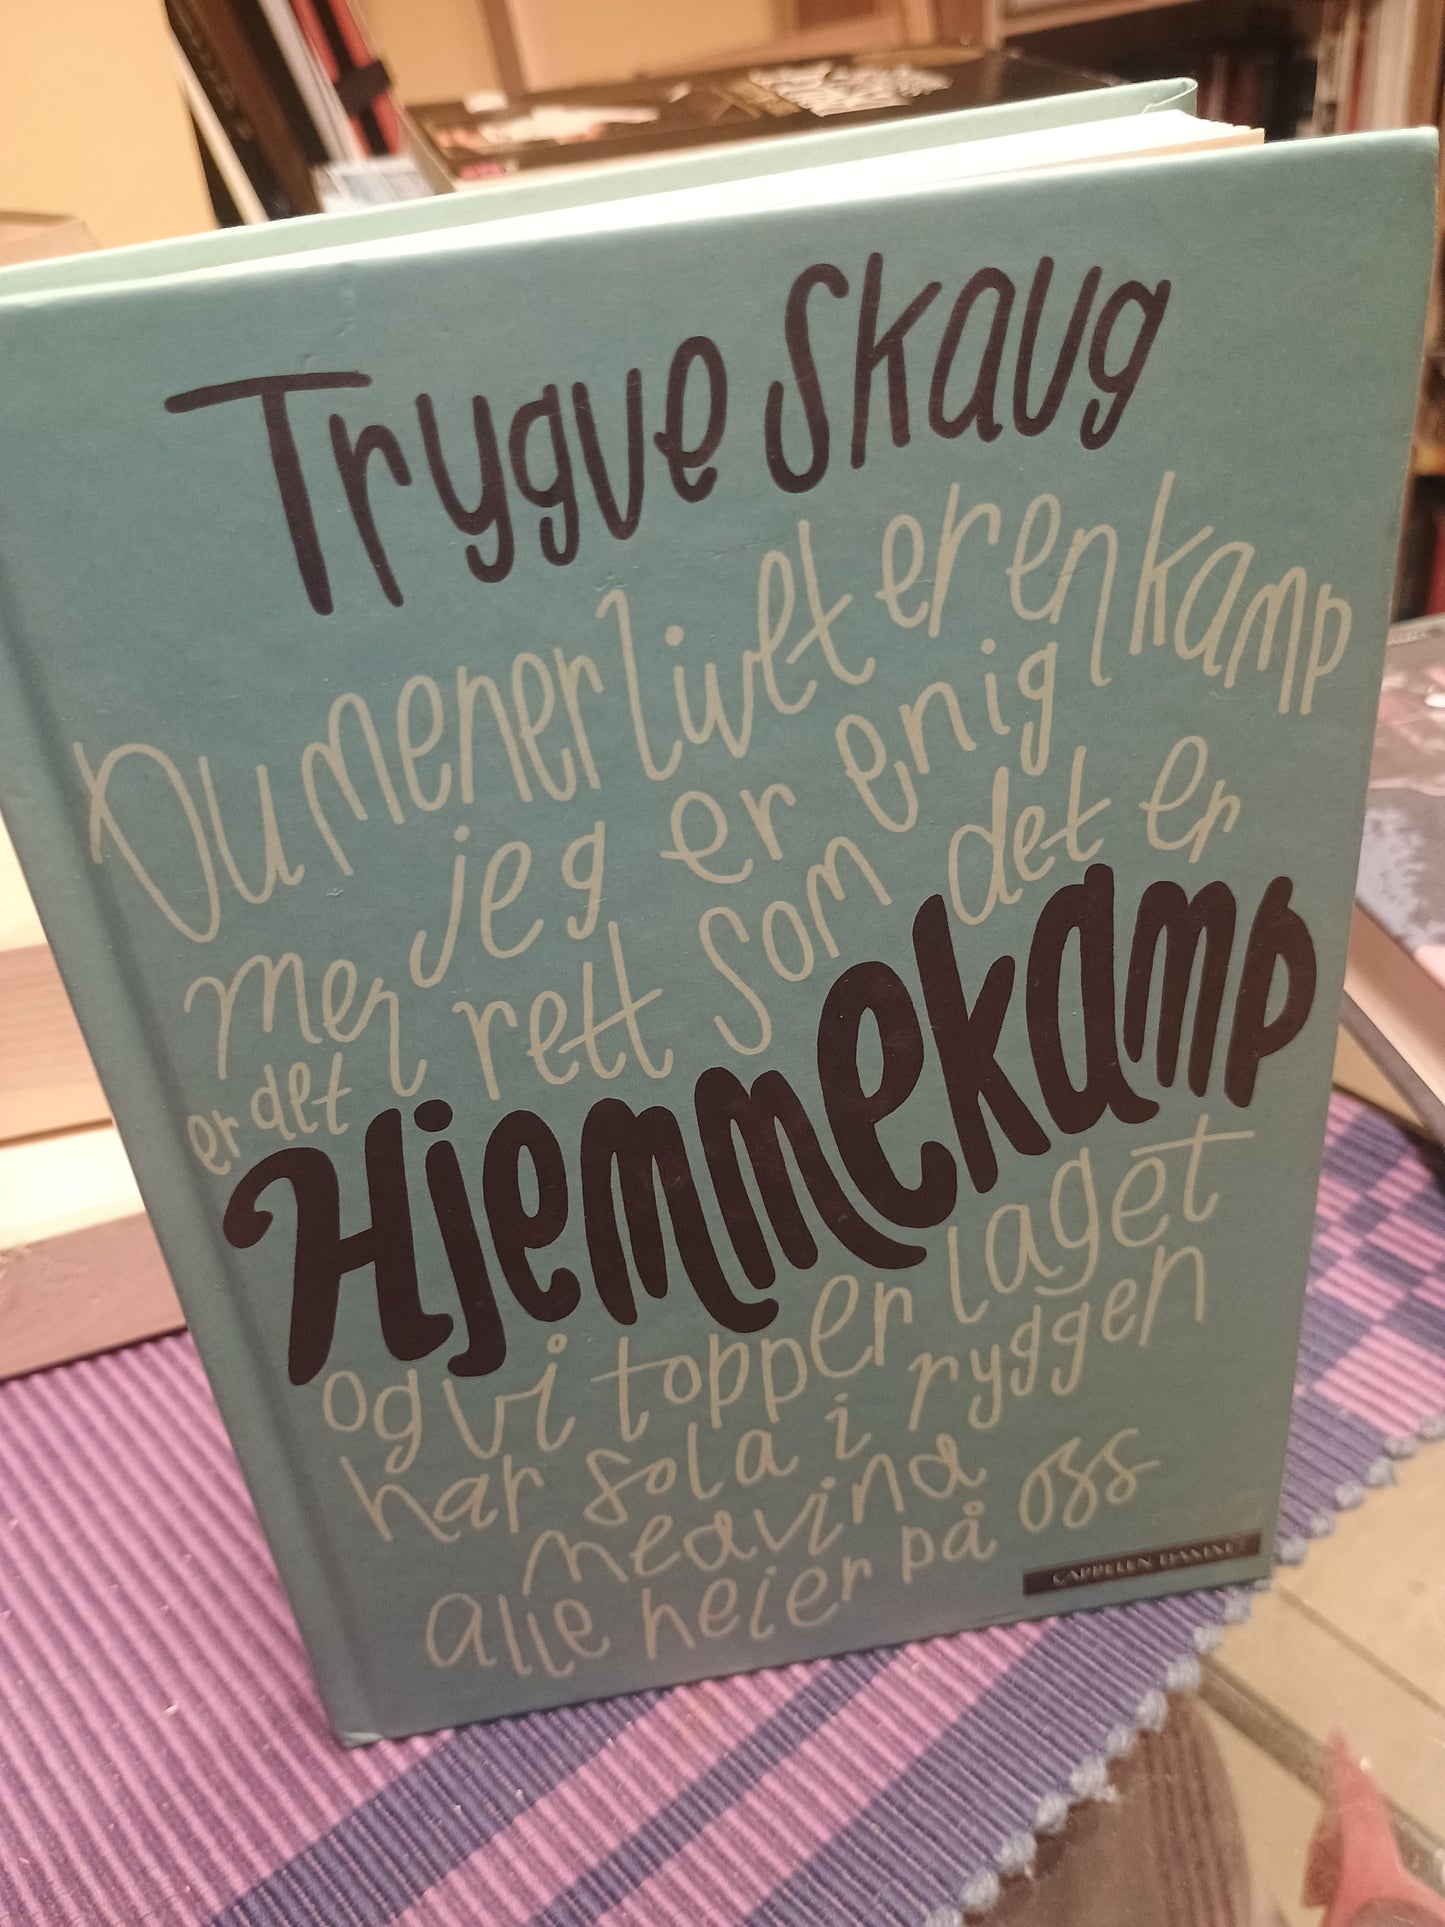 Trygve Skaug
Du mener livet er en kamp
jeg er enig
men er det rett som det er
Hjemmekamp
og vi topper laget
har sola i ryggen
medvind
alle heier på oss
CAPPELEN DAMM